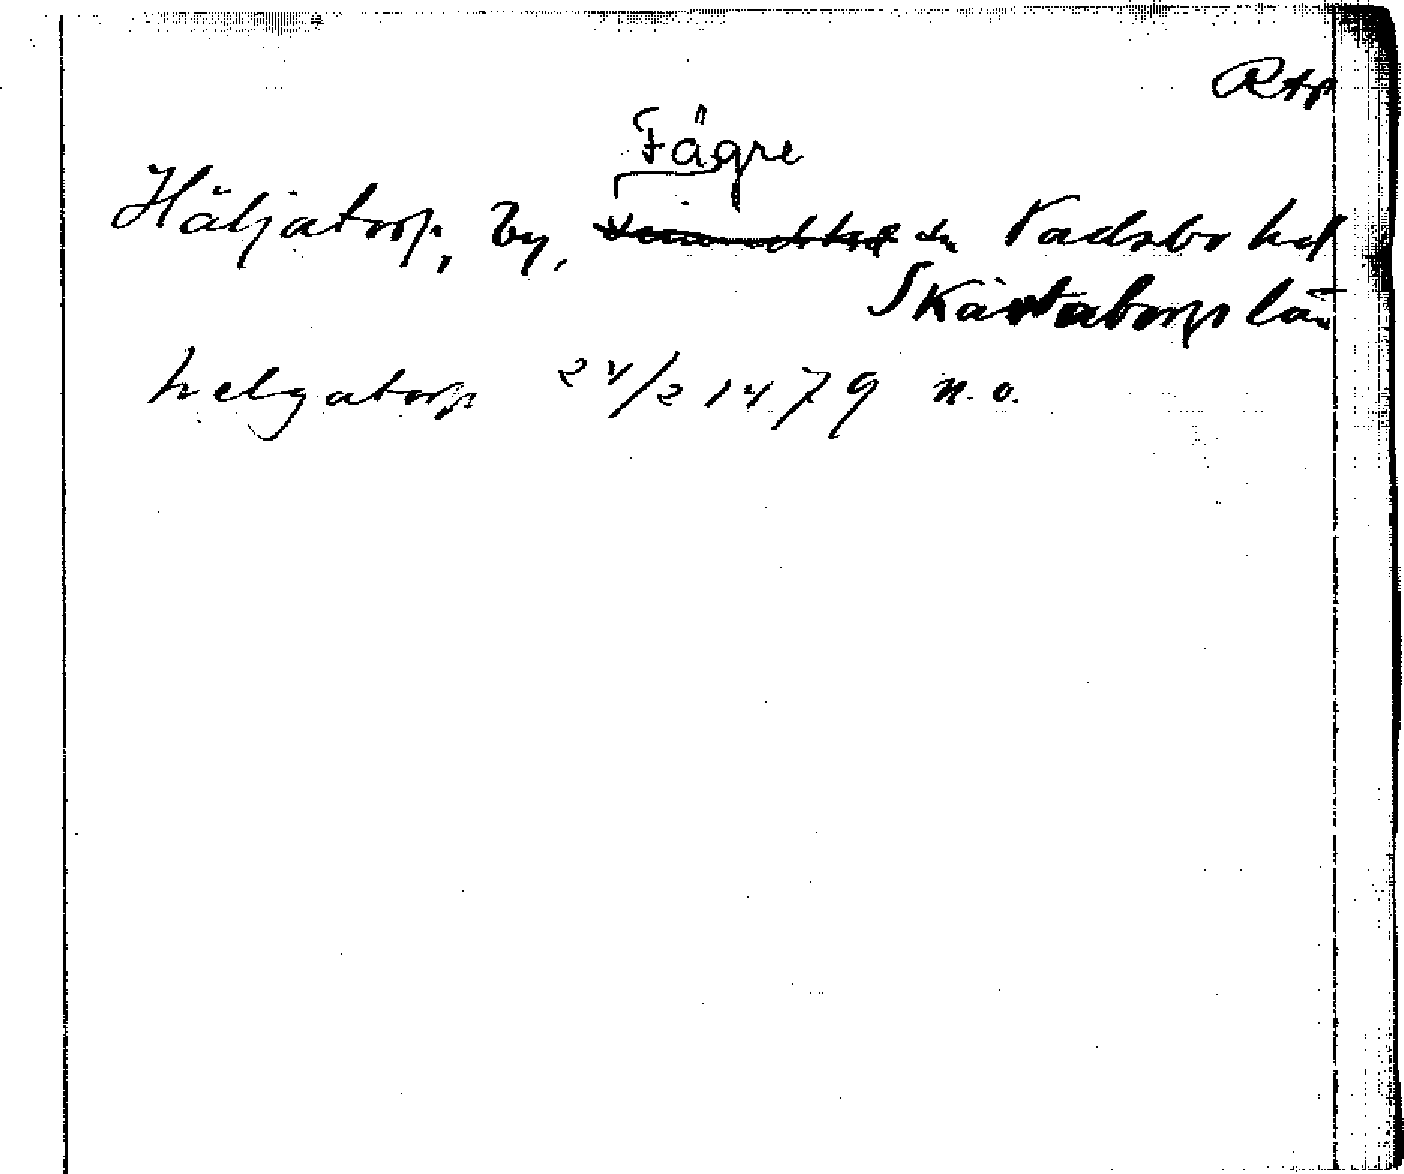 Rap
Fägre
Häljatorp, by, sn Vadsbo hd
Skaraborgs län
helgatorp 24/2 1479 n. o.